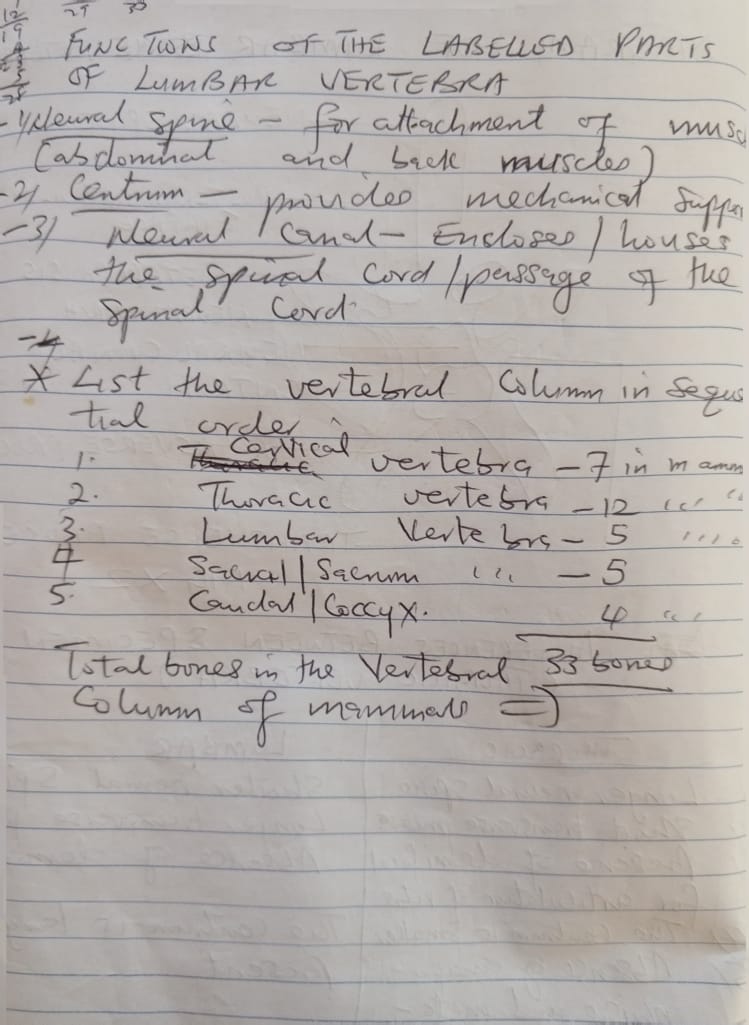 12
19
29 30
FUNCTIONS OF THE LABELLED PARTS
OF LUMBAR VERTEBRA
-1) Neural spine - for attachment of musc
(abdominal and back muscles)
-2) Centrum - provides mechanical suppor
-3) Neural Canal - Encloses / houses
the spinal cord / passage of the
spinal cord.
-4
* List the vertebral column in seque
tial order
1. Thoracic Cervical vertebra - 7 in mamm
2. Thoracic vertebra - 12 " "
3. Lumbar Vertebra - 5 " "
4 Sacral / Sacrum " - 5
5. Caudal / Coccyx. 4 "
Total bones in the Vertebral 33 bones
Column of mammals =>